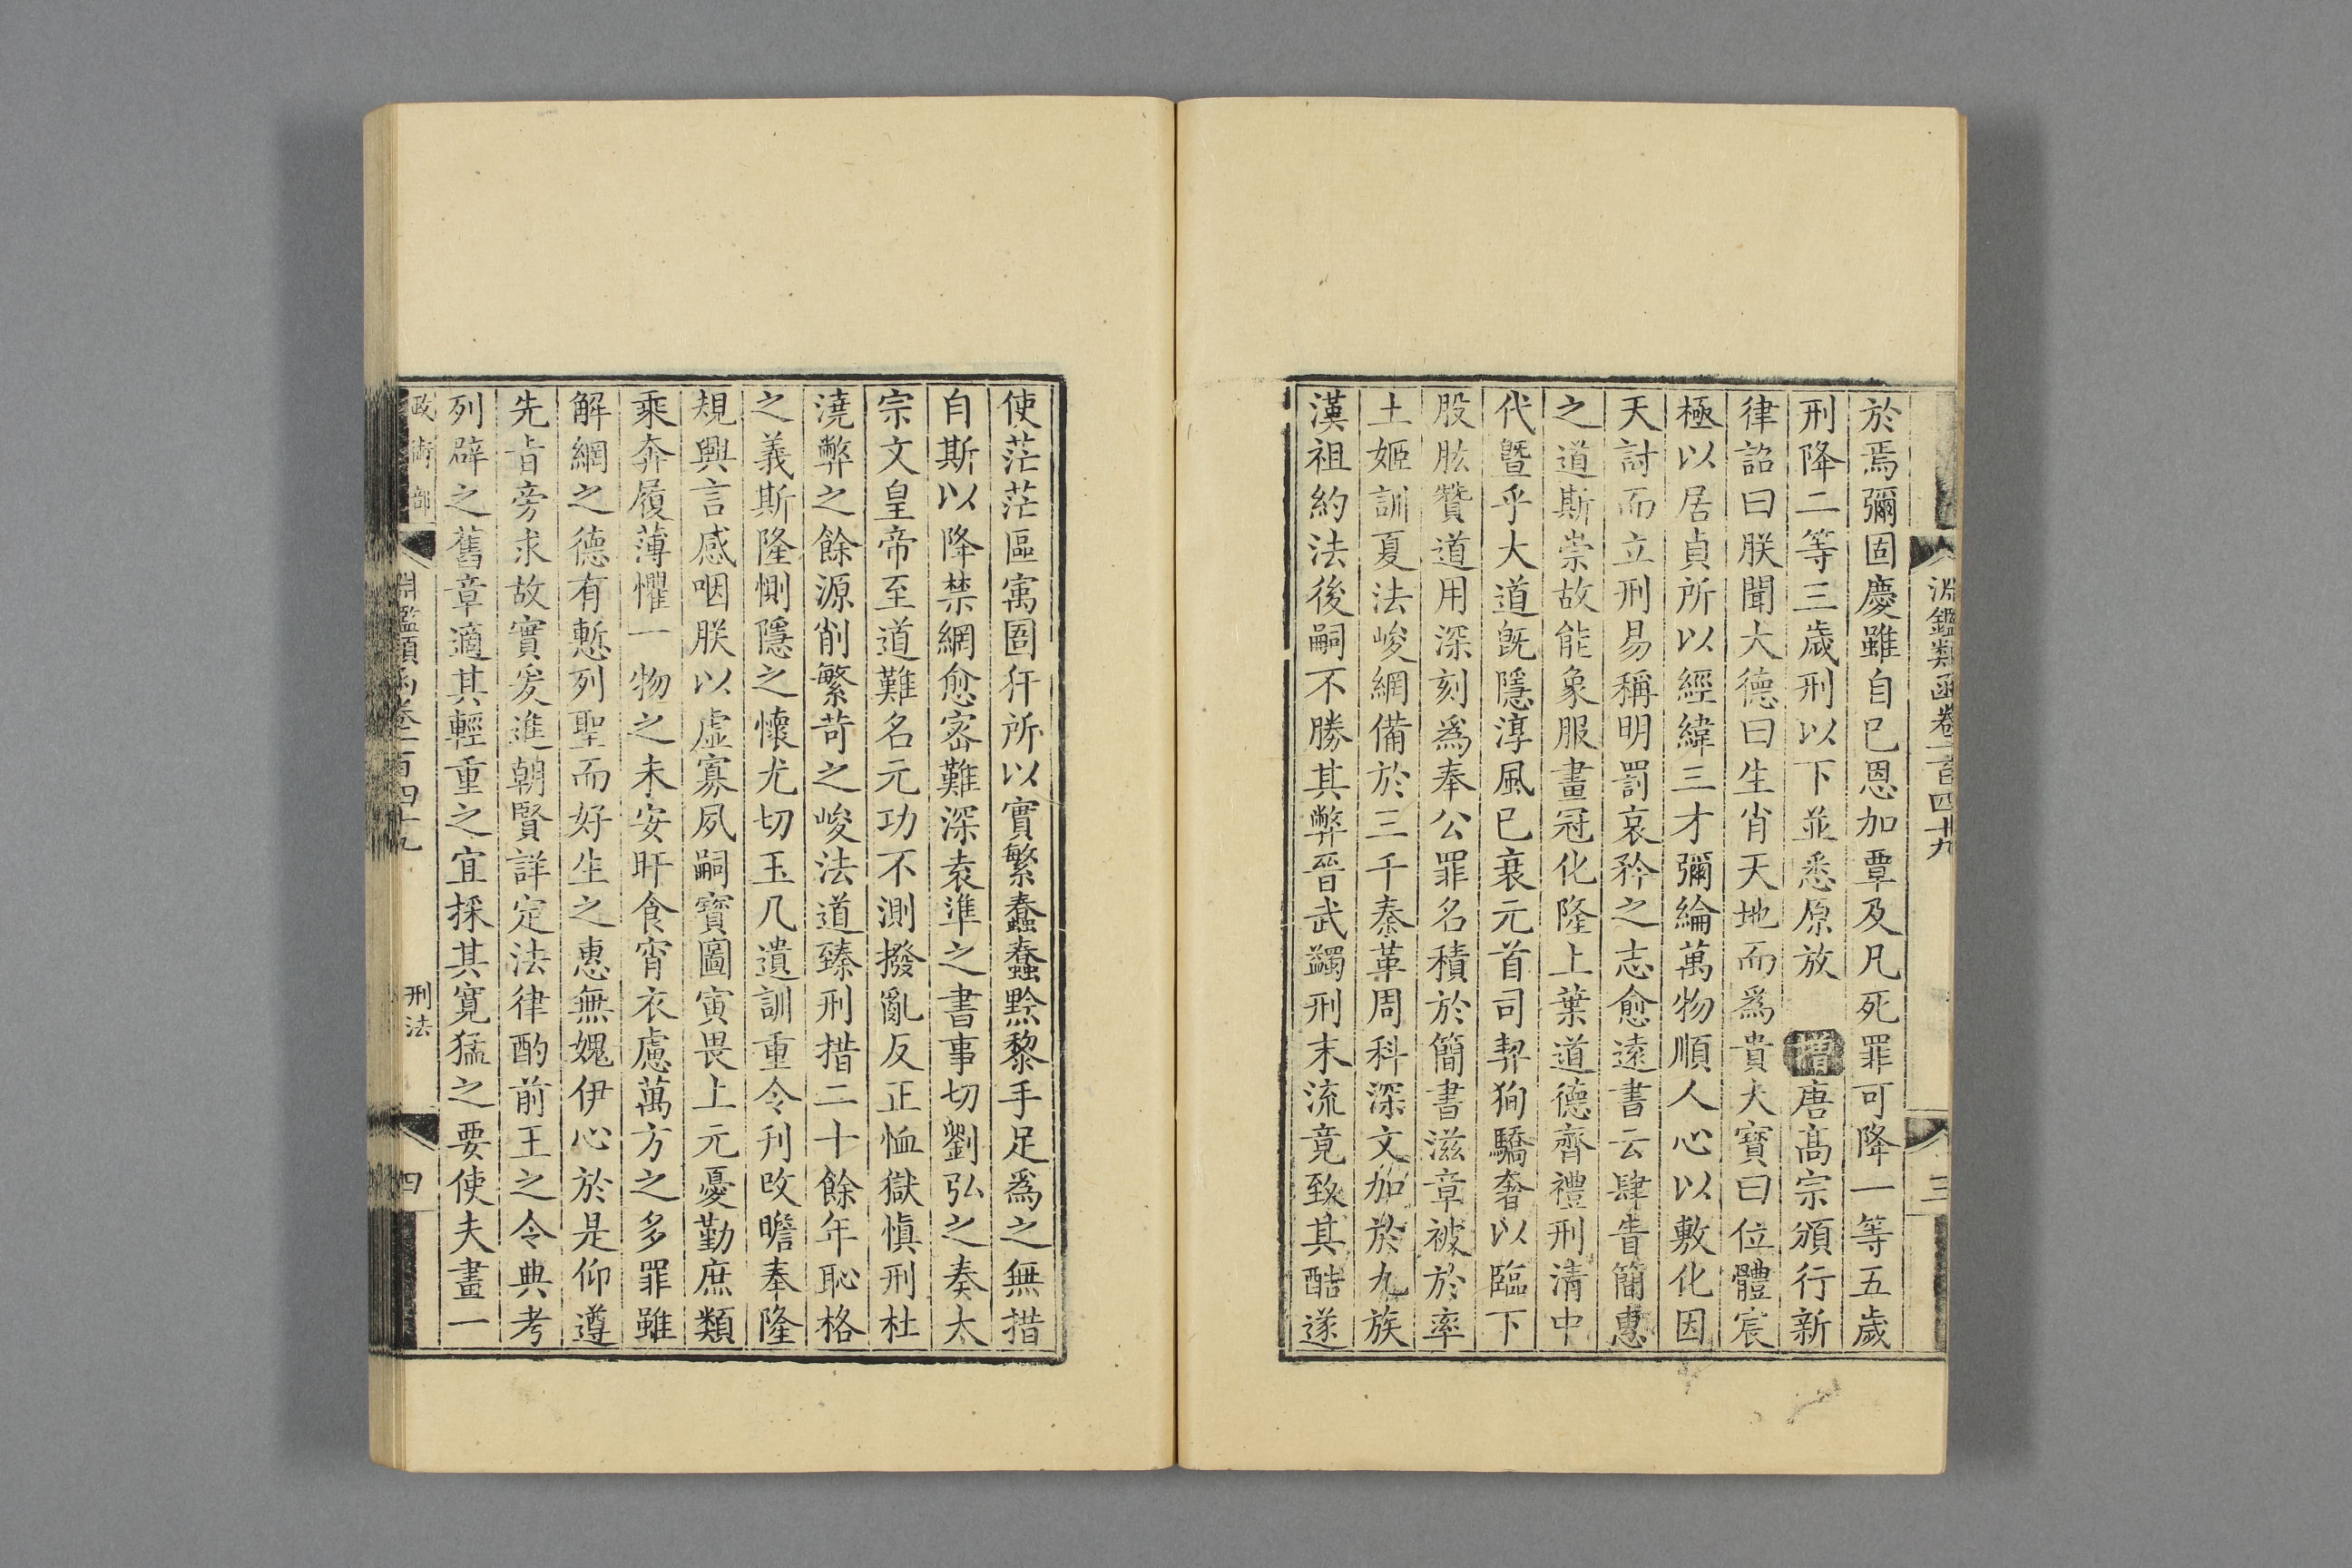 淵鑑類函卷一百四十九
三
於焉彌固慶雖自已恩加覃及凡死罪可降一等五歲
刑降二等三歲刑以下並悉原放 增唐高宗頒行新
律詔曰朕聞大德曰生肖天地而爲貴大寶曰位體宸
極以居貞所以經緯三才彌綸萬物順人心以敷化因
天討而立刑易稱明罰哀矜之志愈遠書云肆眚簡惠
之道斯崇故能象服畫冠化隆上葉道德齊禮刑清中
代曁乎大道旣隱淳風已衰元首司契狥驕奢以臨下
股肱贊道用深刻爲奉公罪名積於簡書滋章被於率
土姬訓夏法峻網備於三千秦革周科深文加於九族
漢祖約法後嗣不勝其弊晉武蠲刑末流竟致其酷遂
使茫茫區寓圄犴所以實繁蠢蠢黔黎手足爲之無措
自斯以降禁網愈密難深袁準之書事切劉弘之奏太
宗文皇帝至道難名元功不測撥亂反正恤獄愼刑杜
澆弊之餘源削繁苛之峻法道臻刑措二十餘年恥格
之義斯隆惻隱之懷尤切玉几遺訓重令刋改瞻奉隆
規興言感咽朕以虛寡夙嗣寶圖寅畏上元憂勤庶類
乘奔履薄懼一物之未安旰食宵衣慮萬方之多罪雖
解網之德有慙列聖而好生之惠無媿伊心於是仰遵
先旨旁求故實爰進朝賢詳定法律酌前王之令典考
列辟之舊章適其輕重之宜採其寬猛之要使夫畫一
政術部 淵鑑類函卷一百四十九 刑法 四